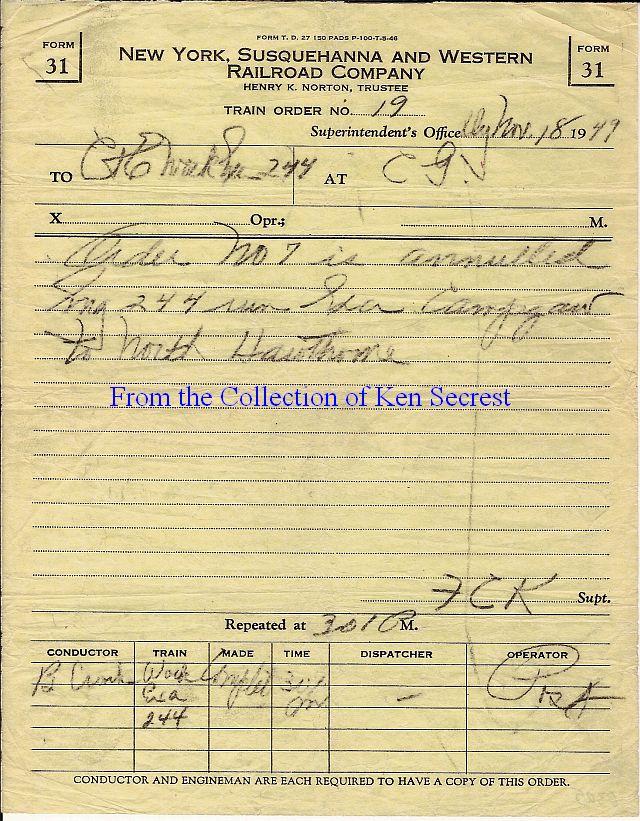 FORM T. D. 27 150 PADS P-100-T-8-46
FORM 31
NEW YORK, SUSQUEHANNA AND WESTERN
RAILROAD COMPANY
FORM 31
HENRY K. NORTON, TRUSTEE
TRAIN ORDER NO. 19
Superintendent's Office Nov. 18 1949
TO C+E Work 244 AT
X Opr.; M.
Order No 7 is annulled
Eng 244 run Exa Campgaw
to North Hawthorne
From the Collection of Ken Secrest
FCK Supt.
Repeated at 301 P M.
CONDUCTOR TRAIN MADE TIME DISPATCHER OPERATOR
Work
Exa
244
CONDUCTOR AND ENGINEMAN ARE EACH REQUIRED TO HAVE A COPY OF THIS ORDER.